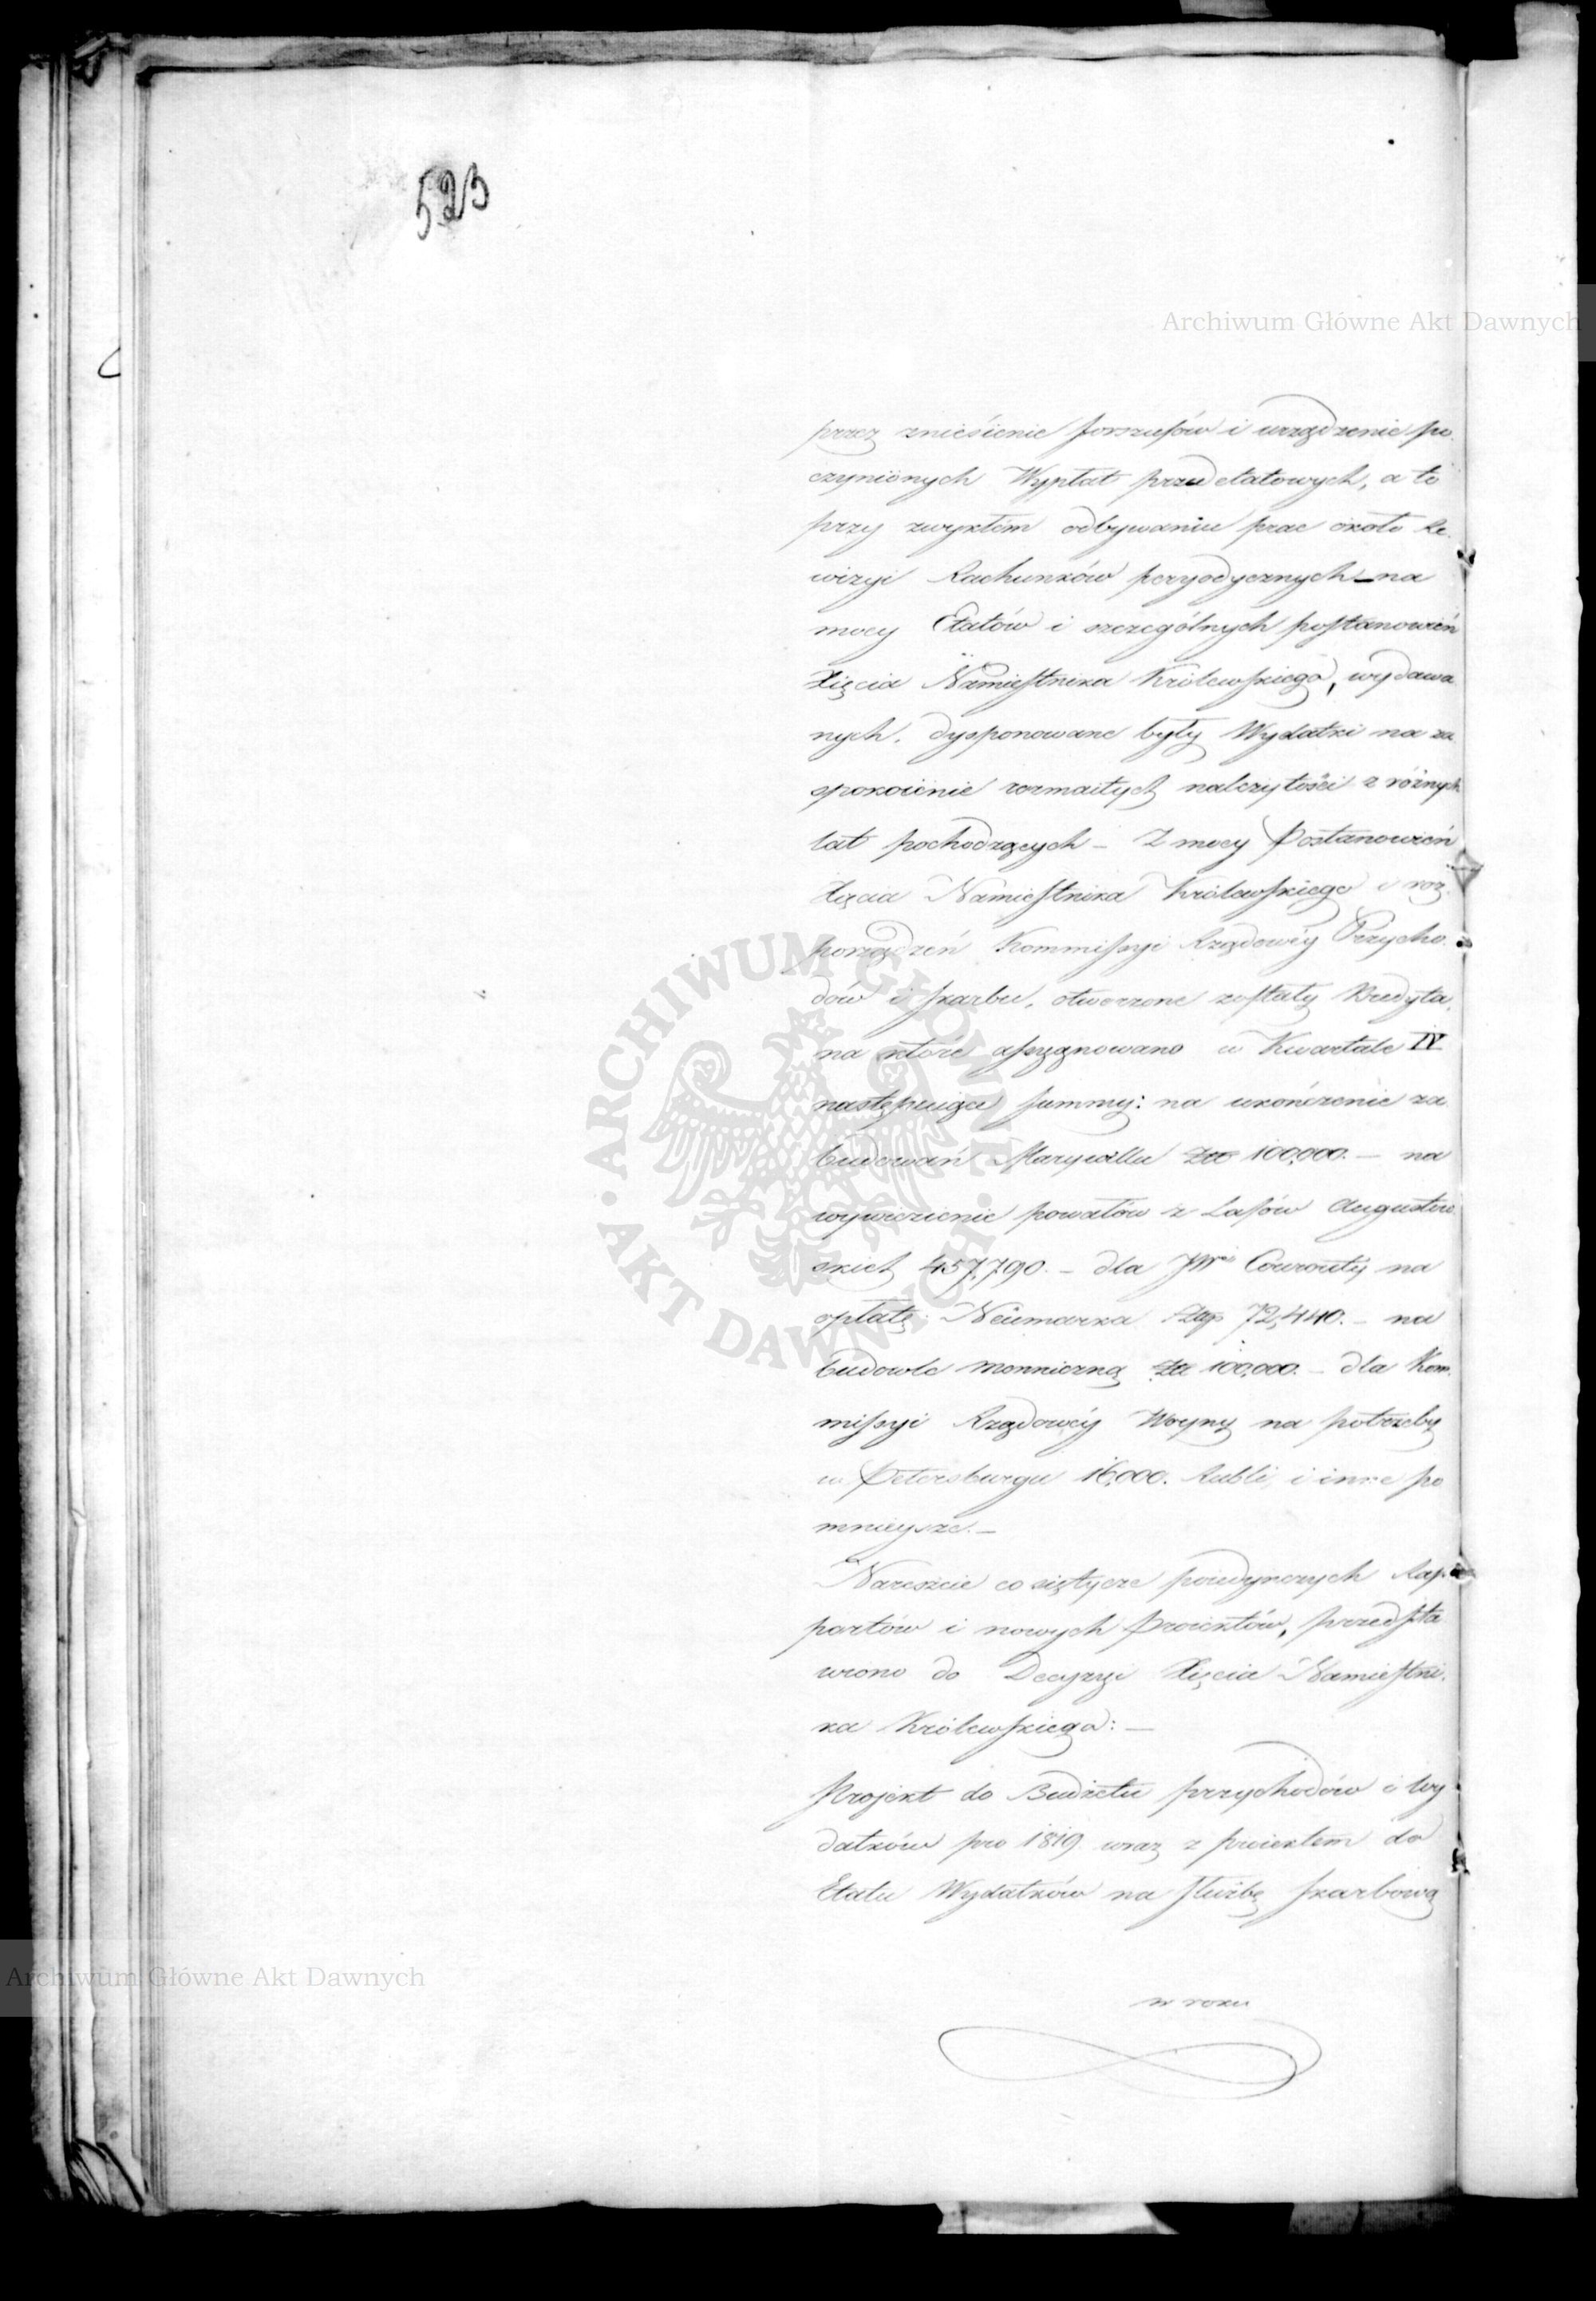 523
Archiwum Główne Akt Dawnych
przez zniesienie forszusów i urządzenie po
czynionych Wypłat przedetatowych, a to
przy zwykłém odbywaniu prac około Re.
wizyi Rachunków peryodycznych – na
mocy Etatów i szczególnych postanowień
Xięcia Namiestnika Królewskiego, wydawa
nych, dysponowane były Wydatki na za
spokoienie rozmaitych należytości z różnych
lat pochodzących – Z mocy Postanowień
Xięcia Namiestnika Królewskiego i roz.
porządzeń Kommissyi Rządowéy Przycho.
dów i skarbu, otworzone zostały Kredyta,
na które assygnowano w Kwartale IV
następuiące summy: na ukończenie za
budowań Marywillu Zło 100,000. – na
wywiezienie kowałów z Lasów Augustow
skich 457,790. – dla JWo na
opłatę Neumarka Złp 72,440. – na
budowle menniczną Zł 100,000. – dla Kom.
missyi Rządowéy Woyny na potrzeby
w Petersburgu 16,000. Rubli, i inne po
mnieysze. –
Nareszcie co siętycze poiedynczych Rap.
portów i nowych Proiektów, przedsta
wiono do Decyzyi Xięcia Namiestni.
ka Królewskiego: –
Projekt do Budżetu przychodów i Wy
datków pro 1819. wraz z proiektem do
Etatu Wydatków na służbę skarbową
w roku
Archiwum Główne Akt Dawnych
ARCHIWUM GŁÓWNE · AKT DAWNYCH ·